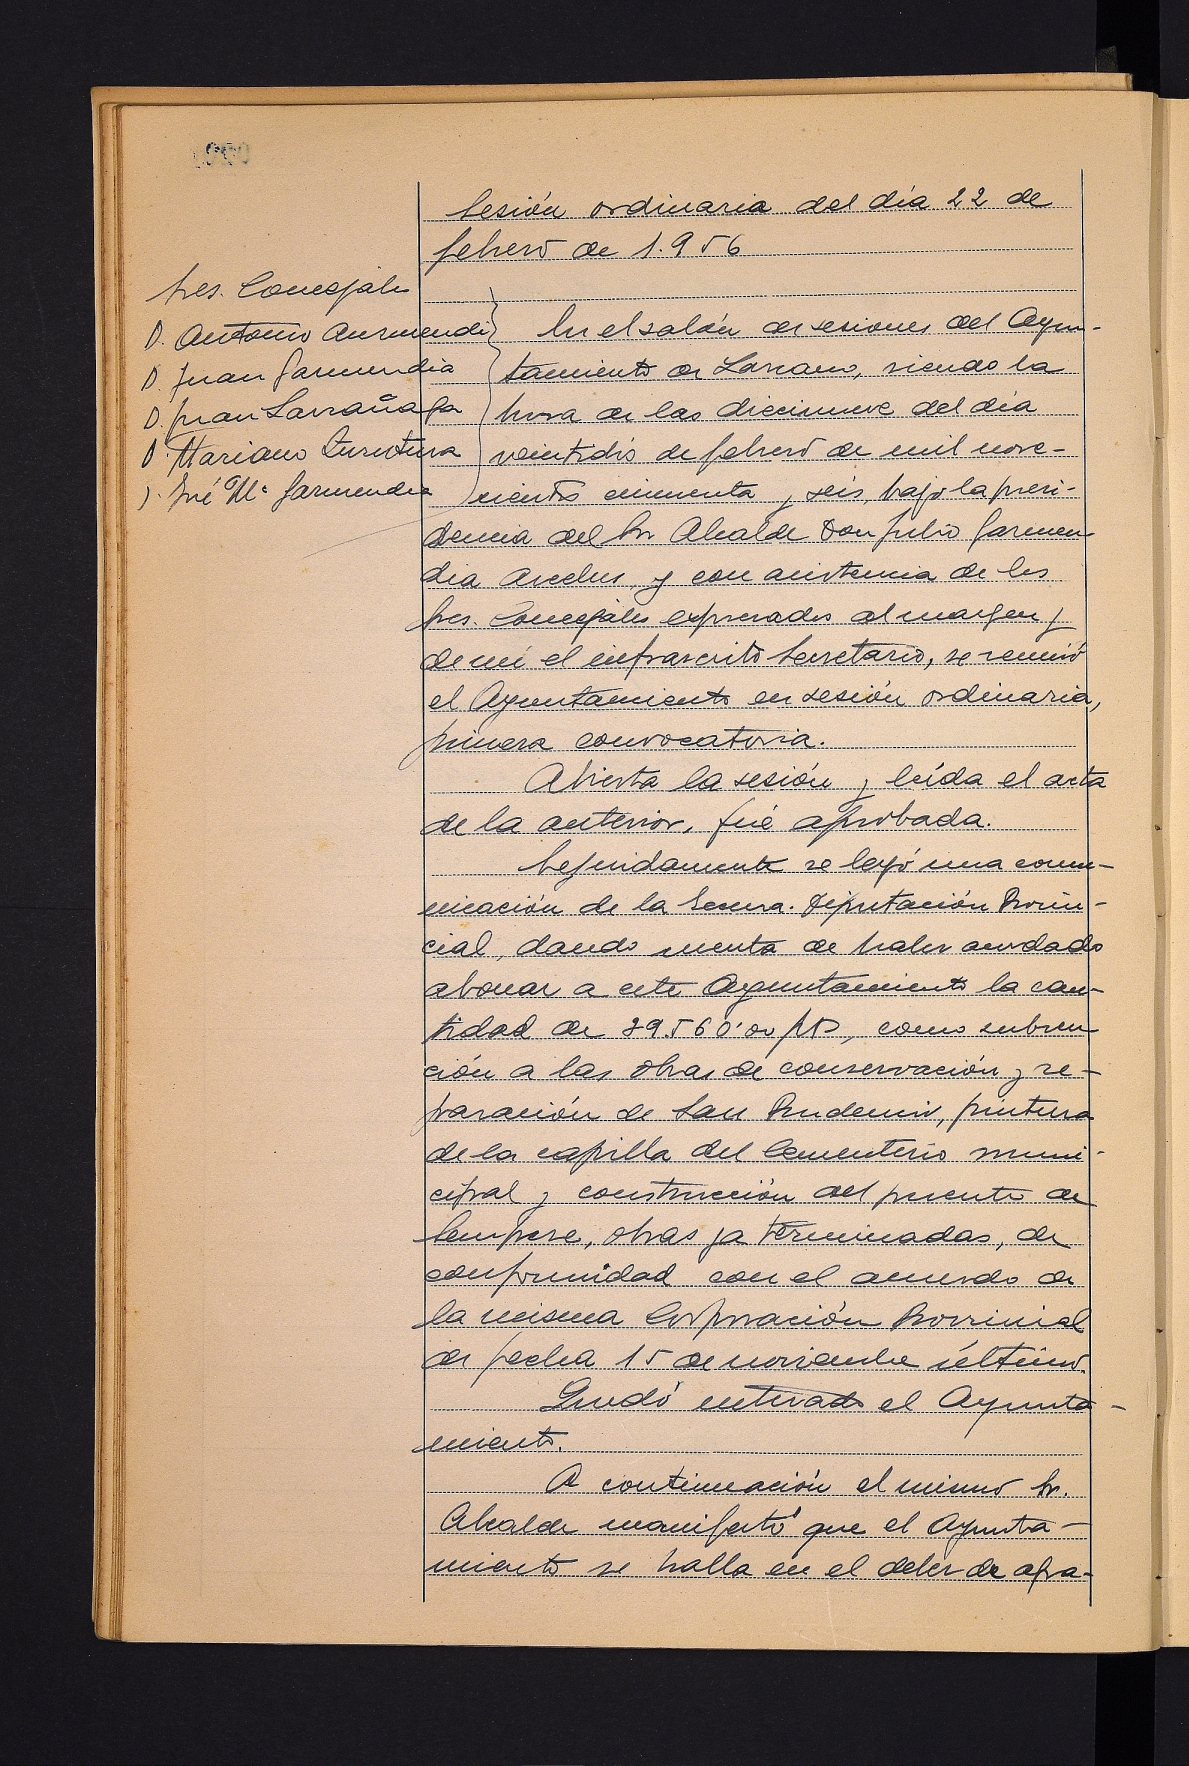 Sesión ordinaria del día 22 de
febrero de 1.956
Sres. Concejales
D. Antonio Aurmendi
D. Juan Garmendia
D. Juan Larrañaga
D. Mariano
D. José Mª Garmendia
En el salón de sesiones del Ayun-
tamiento de Lazcano, siendo la
hora de las diecinueve del día
veintidós de febrero de mil nove-
cientos cincuenta y seis, bajo la presi-
dencia del Sr. Alcalde Don Julio Garmen-
dia Arcelus, y con asistencia de los
Sres. Concejales expresados al margen y
de mí el infrascrito Secretario, se reunió
el Ayuntamiento en sesión ordinaria,
primera convocatoria.
Abierta la sesión y leída el acta
de la anterior, fué aprobada.
Seguidamente se leyó una comu-
nicación de la Excma. Diputación Provin-
cial, dando cuenta de haber acordado
abonar a este Ayuntamiento la can-
tidad de 39.560'00 pts, como subven
ción a las obras de conservación y re-
paración de San Prudencio, pintura
de la capilla del Cementerio muni-
cipal y construcción del puente de
obras ya terminadas, de
conformidad con el acuerdo de
la misma Corporación Provincial
de fecha 15 de noviembre último.
Quedó enterado el Ayunta-
miento.
A continuación el mismo Sr.
Alcalde manifestó que el Ayunta-
miento se halla en el deber de agra-